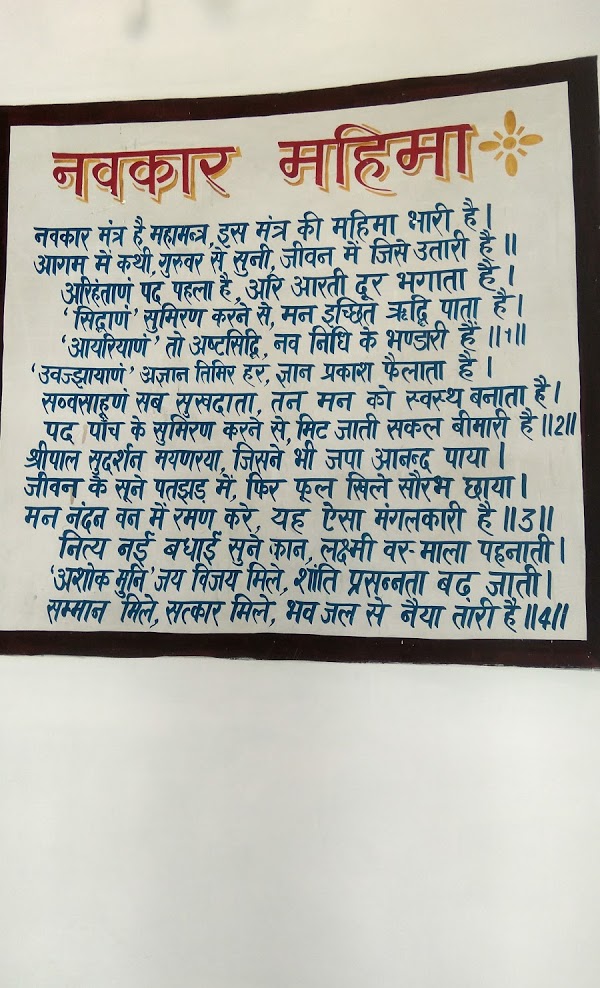 नवकार महिमा
नवकार मंत्र है महामन्त्र, इस मंत्र की महिमा भारी है।
आगम में कथी, गुरुवर से सुनी, जीवन में जिसे उतारी है॥
अरिहंताणं पद पहला है, अरि आरती दूर भगाता है।
'सिद्वाणं' सुमिरण करने से, मन इच्छित ऋद्वि पाता है।
'आयरियाणं' तो अष्टसिद्वि, नव निधि के भण्डारी है॥1॥
'उवज्झायाणं' अज्ञान तिमिर हर, ज्ञान प्रकाश फैलाता है।
सव्वसाहूणं सब सुखदाता, तन मन को स्वस्थ बनाता है।
पद पाँच के सुमिरण करने से, मिट जाती सकल बीमारी है॥2॥
श्रीपाल सुदर्शन मयणरया, जिसने भी जपा आनन्द पाया।
जीवन के सूने पतझड़ में, फिर फूल खिले सौरभ छाया।
मन नंदन वन में रमण करे, यह ऐसा मंगलकारी है॥3॥
नित्य नई बधाई सुने कान, लक्ष्मी वर-माला पहनाती।
'अशोक मुनि' जय विजय मिले, शांति प्रसन्नता बढ़ जाती।
सम्मान मिले, सत्कार मिले, भव जल से नैया तारी है॥4॥